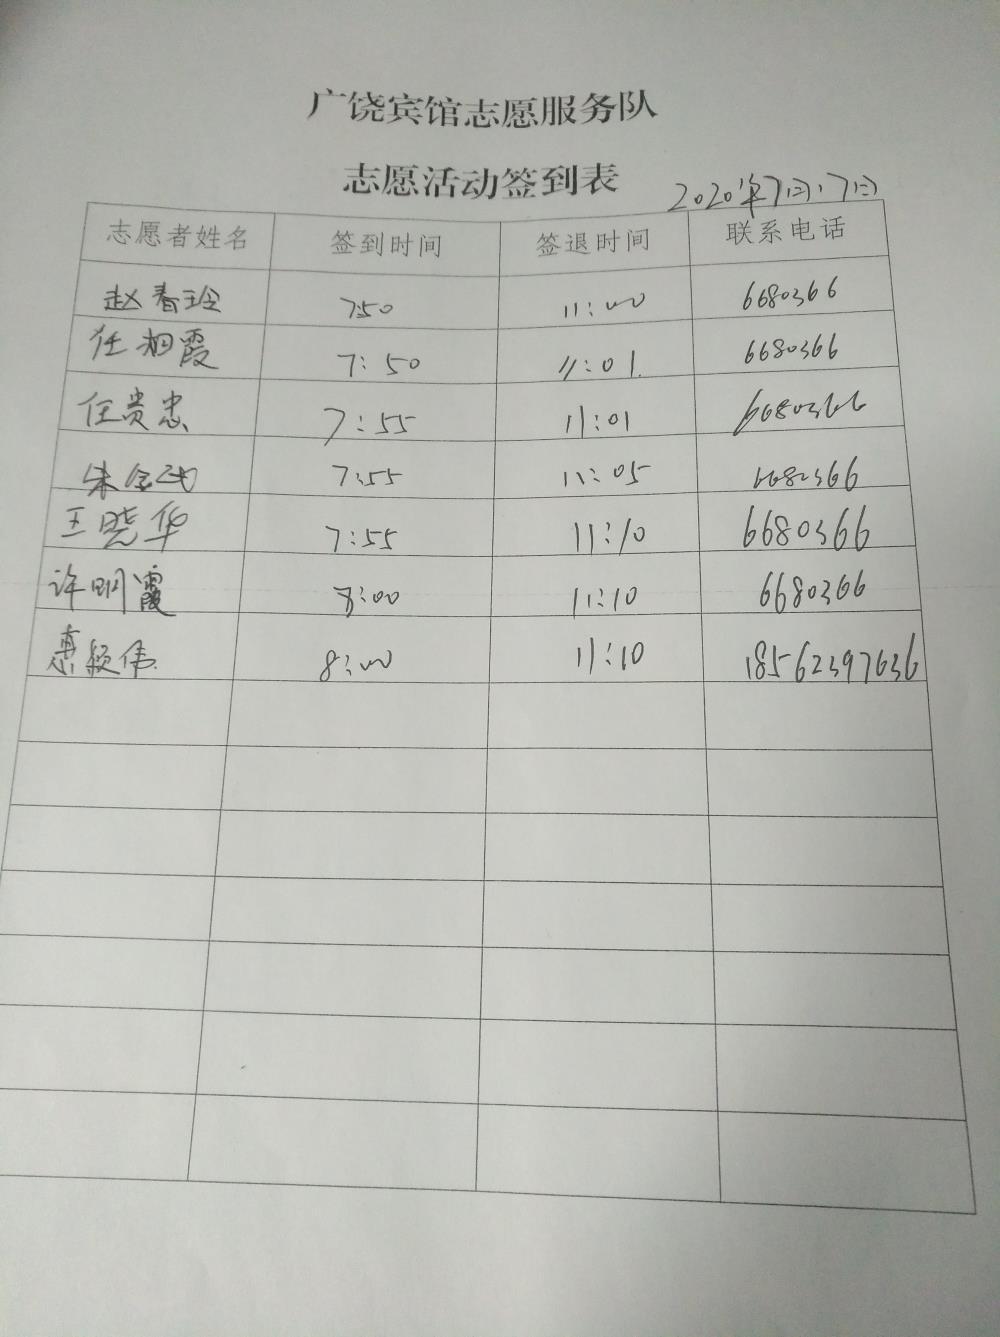 广饶宾馆志愿服务队
志愿活动签到表
2020年7月17日
志愿者姓名 签到时间 签退时间 联系电话
赵春玲 750 11:00 6680366
任相霞 7:50 11:01 6680366
任贵忠 7:55 11:01 6680366
朱金武 7:55 11:05 6680366
王晓华 7:55 11:10 6680366
许明霞 8:00 11:10 6680366
惠颖伟 8:00 11:10 18562397636